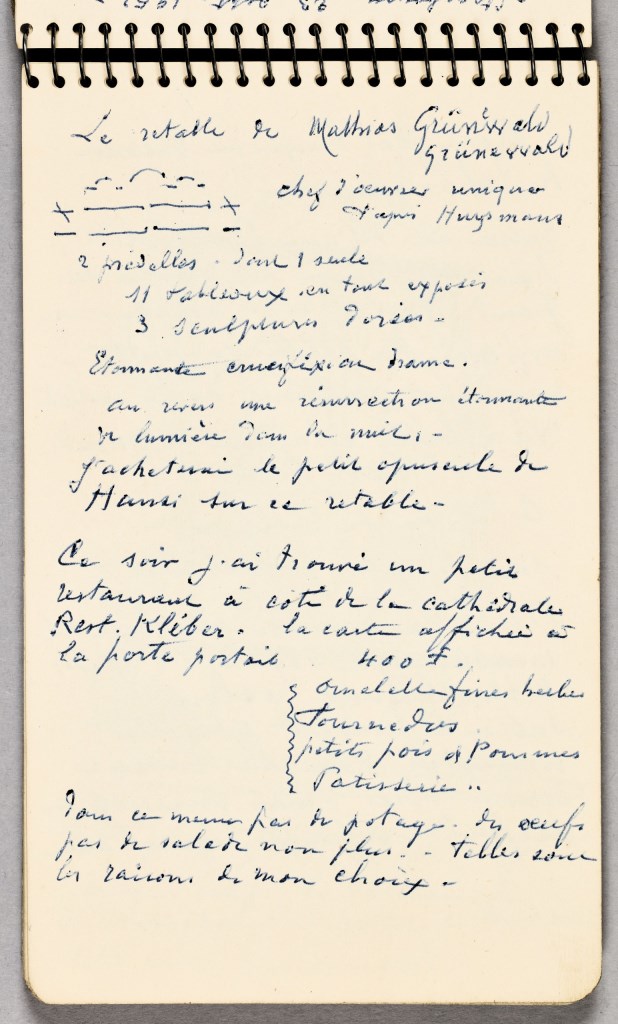 Le retable de Mathias Grünewald
Grünewald
chef d'oeuvres unique
d'après Huysmans
2 prédelles. dont 1 seule
11 tableaux en tout exposés
3 sculptures dorées -
Etonnante crucifixion drame.
au revers une résurrection étonnante
de lumière dans la nuit. -
J'achèterai le petit opuscule de
Hansi sur ce retable -
Ce soir j'ai trouvé un petit
restaurant à côté de la cathédrale
Rest. Kléber. la carte affichée à
la porte portait 400 F.
Omelette fines herbes
Tournedos
petits pois & Pommes
Patisserie ..
Dans ce menu pas de potage. des oeufs
pas de salade non plus. - telles sont
les raisons de mon choix -